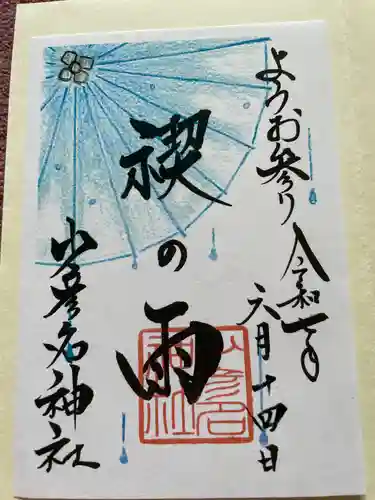 ようお参り 令和二年
六月十四日
禊の雨
少彦名神社